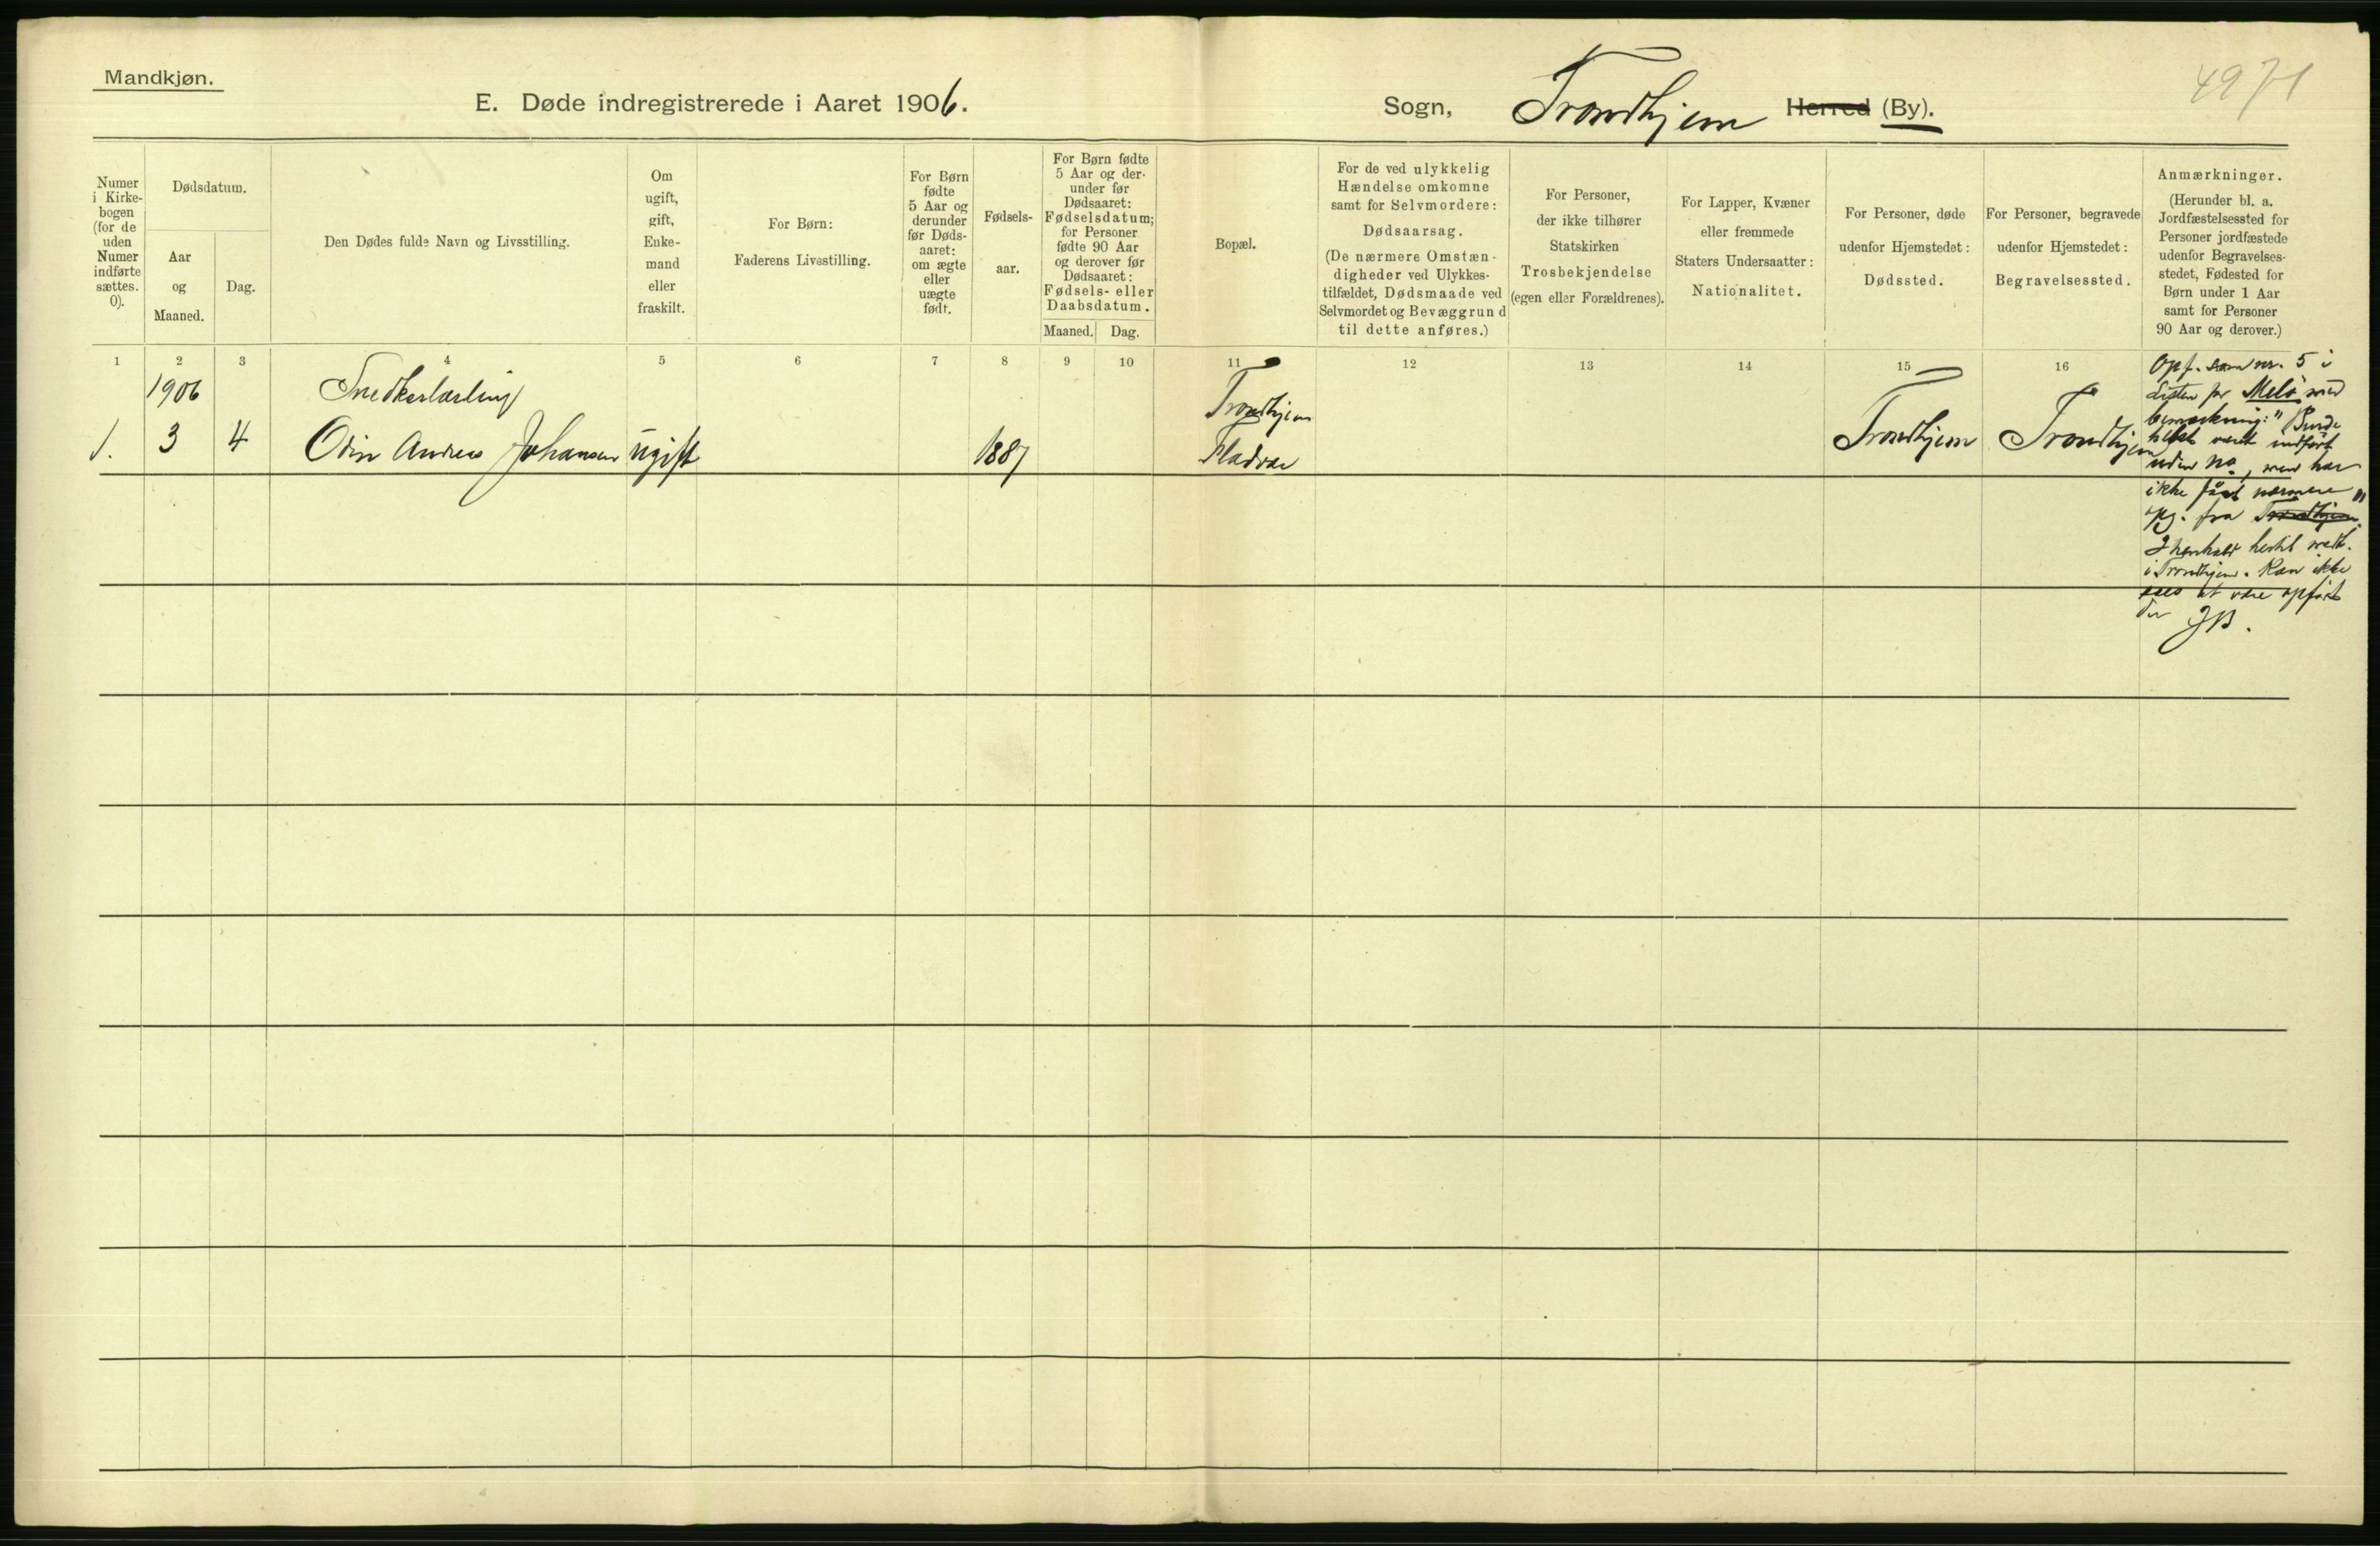 Mandkjøn.
4971
E. Døde indregistrerede i Aaret 1906.
Sogn, Trondhjem Herred (By).
Numer
i Kirke-
bogen
(for de
uden
Numer
indførte
sættes.
0).
Dødsdatum.
Aar
og
Maaned.
Dag.
Den Dødes fulde Navn og Livsstilling.
Om
ugift,
gift,
Enke-
mand
eller
fraskilt.
For Børn:
Faderens Livsstilling.
For Børn
fødte
5 Aar og
derunder
før Døds-
aaret:
om ægte
eller
uægte
født.
Fødsels-
aar.
For Børn fødte
5 Aar og der-
under før
Dødsaaret:
Fødselsdatum;
for Personer
fødte 90 Aar
og derover før
Dødsaaret:
Fødsels- eller
Daabsdatum.
Maaned. Dag.
Bopæl.
For de ved ulykkelig
Hændelse omkomne
samt for Selvmordere:
Dødsaarsag.
(De nærmere Omstæn-
digheder ved Ulykkes-
tilfældet, Dødsmaade ved
Selvmordet og Bevæggrund
til dette anføres.)
For Personer,
der ikke tilhører
Statskirken
Trosbekjendelse
(egen eller Forældrenes).
For Lapper, Kvæner
eller fremmede
Staters Undersaatter:
Nationalitet.
For Personer, døde
udenfor Hjemstedet:
Dødssted.
For Personer, begravede
udenfor Hjemstedet:
Begravelsessted.
Anmærkninger.
(Herunder bl. a.
Jordfæstelsessted for
Personer jordfæstede
udenfor Begravelses-
stedet, Fødested for
Børn under 1 Aar
samt for Personer
90 Aar og derover.)
1 2 3 4 5 6 7 8 9 10 11 12 13 14 15 16
1906 Snedkerlærling Trondhjem
1. 3 4 Odin Andreas Johansen ugift 1887 Trondhjem Trondhjem
Opf. som nr. 5 i
Listen for Melø med
bemerkning: "Burde
vært indført
uden No, men har
ikke fåt nærmere
opg. fra Trondhjem."
I henhold hertil medt.
i Trondhjem. Kan ikke
sees at være opført
der JB.